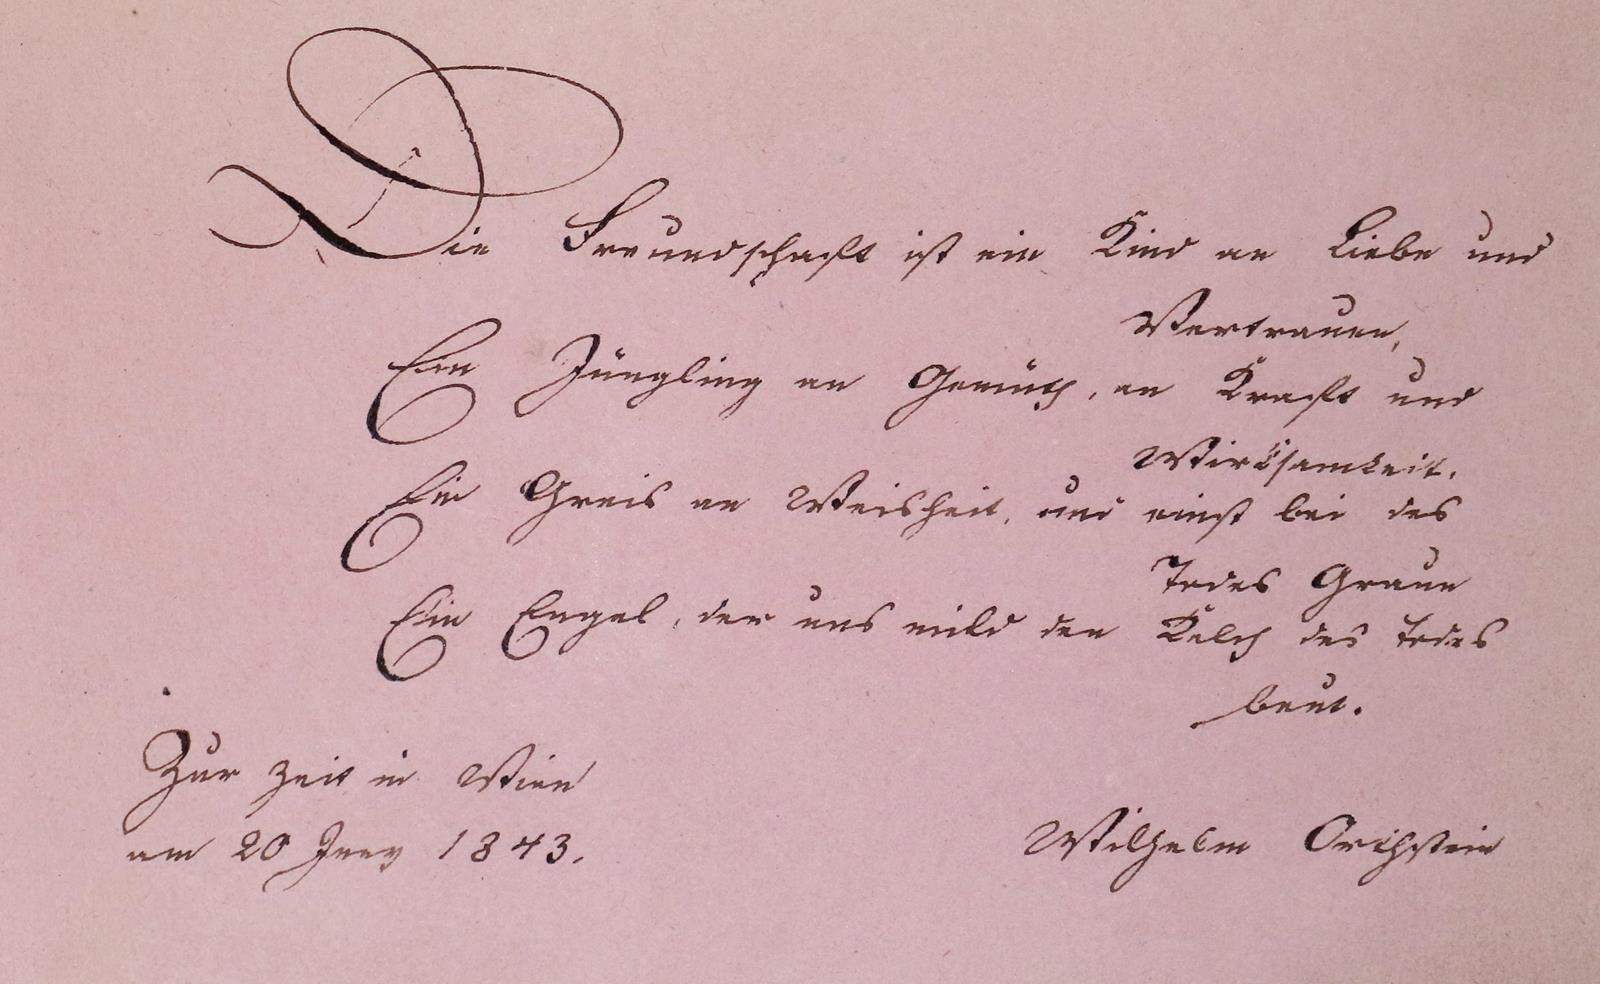 Die Freundschaft ist ein Kind an Liebe und
Vertrauen,
Ein Jüngling an Gemüth, an Kraft und
Wirksamkeit.
Ein Greis an Weisheit, und einst bei des
Todes Graun
Ein Engel, der uns mild den Kelch des Todes
beut.
Zur Zeit in Wien
am 20 Juny 1843.
Wilhelm